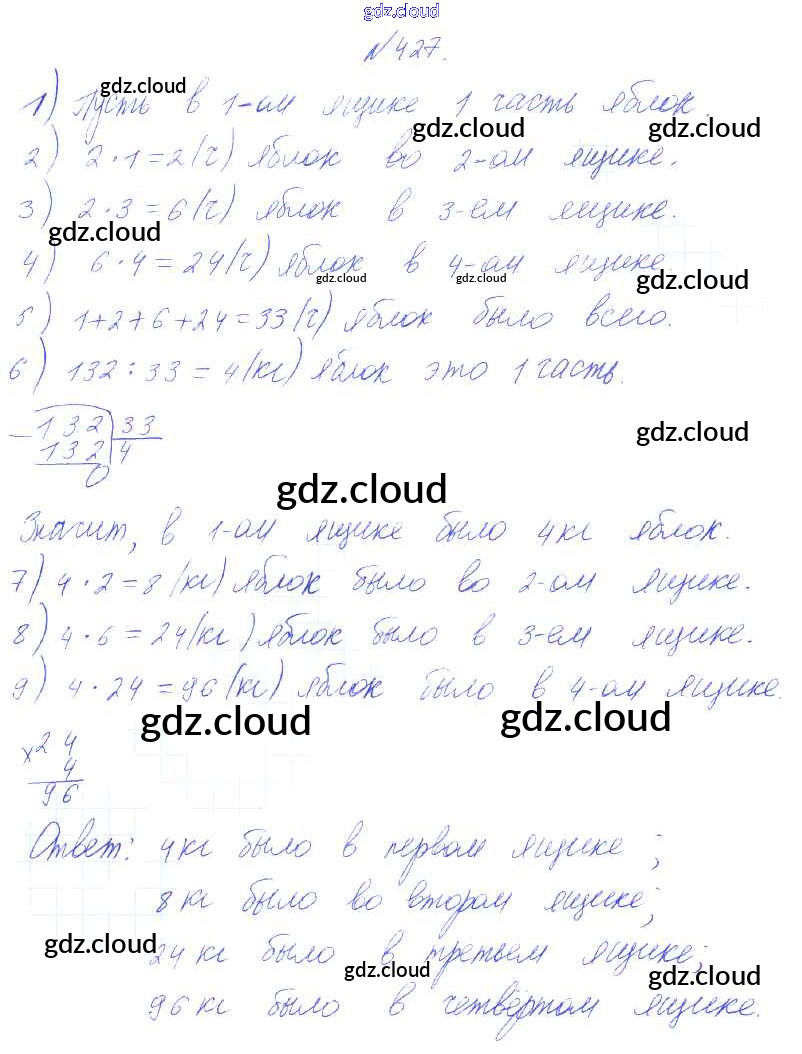 gdz.cloud
№427.
gdz.cloud
1) Пусть в 1-ом ящике 1 часть яблок.
gdz.cloud gdz.cloud
2) 2·1=2(ч) яблок во 2-ом ящике.
3) 2·3=6(ч) яблок в 3-ем ящике.
gdz.cloud
4) 6·4=24(ч) яблок в 4-ом ящике
gdz.cloud gdz.cloud gdz.cloud
5) 1+2+6+24=33(ч) яблок было всего.
6) 132:33=4(кг) яблок это 1 часть.
132 33
gdz.cloud
132 4
0
gdz.cloud
Значит, в 1-ом ящике было 4кг яблок.
7) 4·2=8(кг) яблок было во 2-ом ящике.
8) 4·6=24(кг) яблок было в 3-ем ящике.
9) 4·24=96(кг) яблок было в 4-ом ящике.
gdz.cloud gdz.cloud
×24
4
96
Ответ: 4кг было в первом ящике;
8кг было во втором ящике;
gdz.cloud
24кг было в третьем ящике;
gdz.cloud gdz.cloud
96кг было в четвёртом ящике.